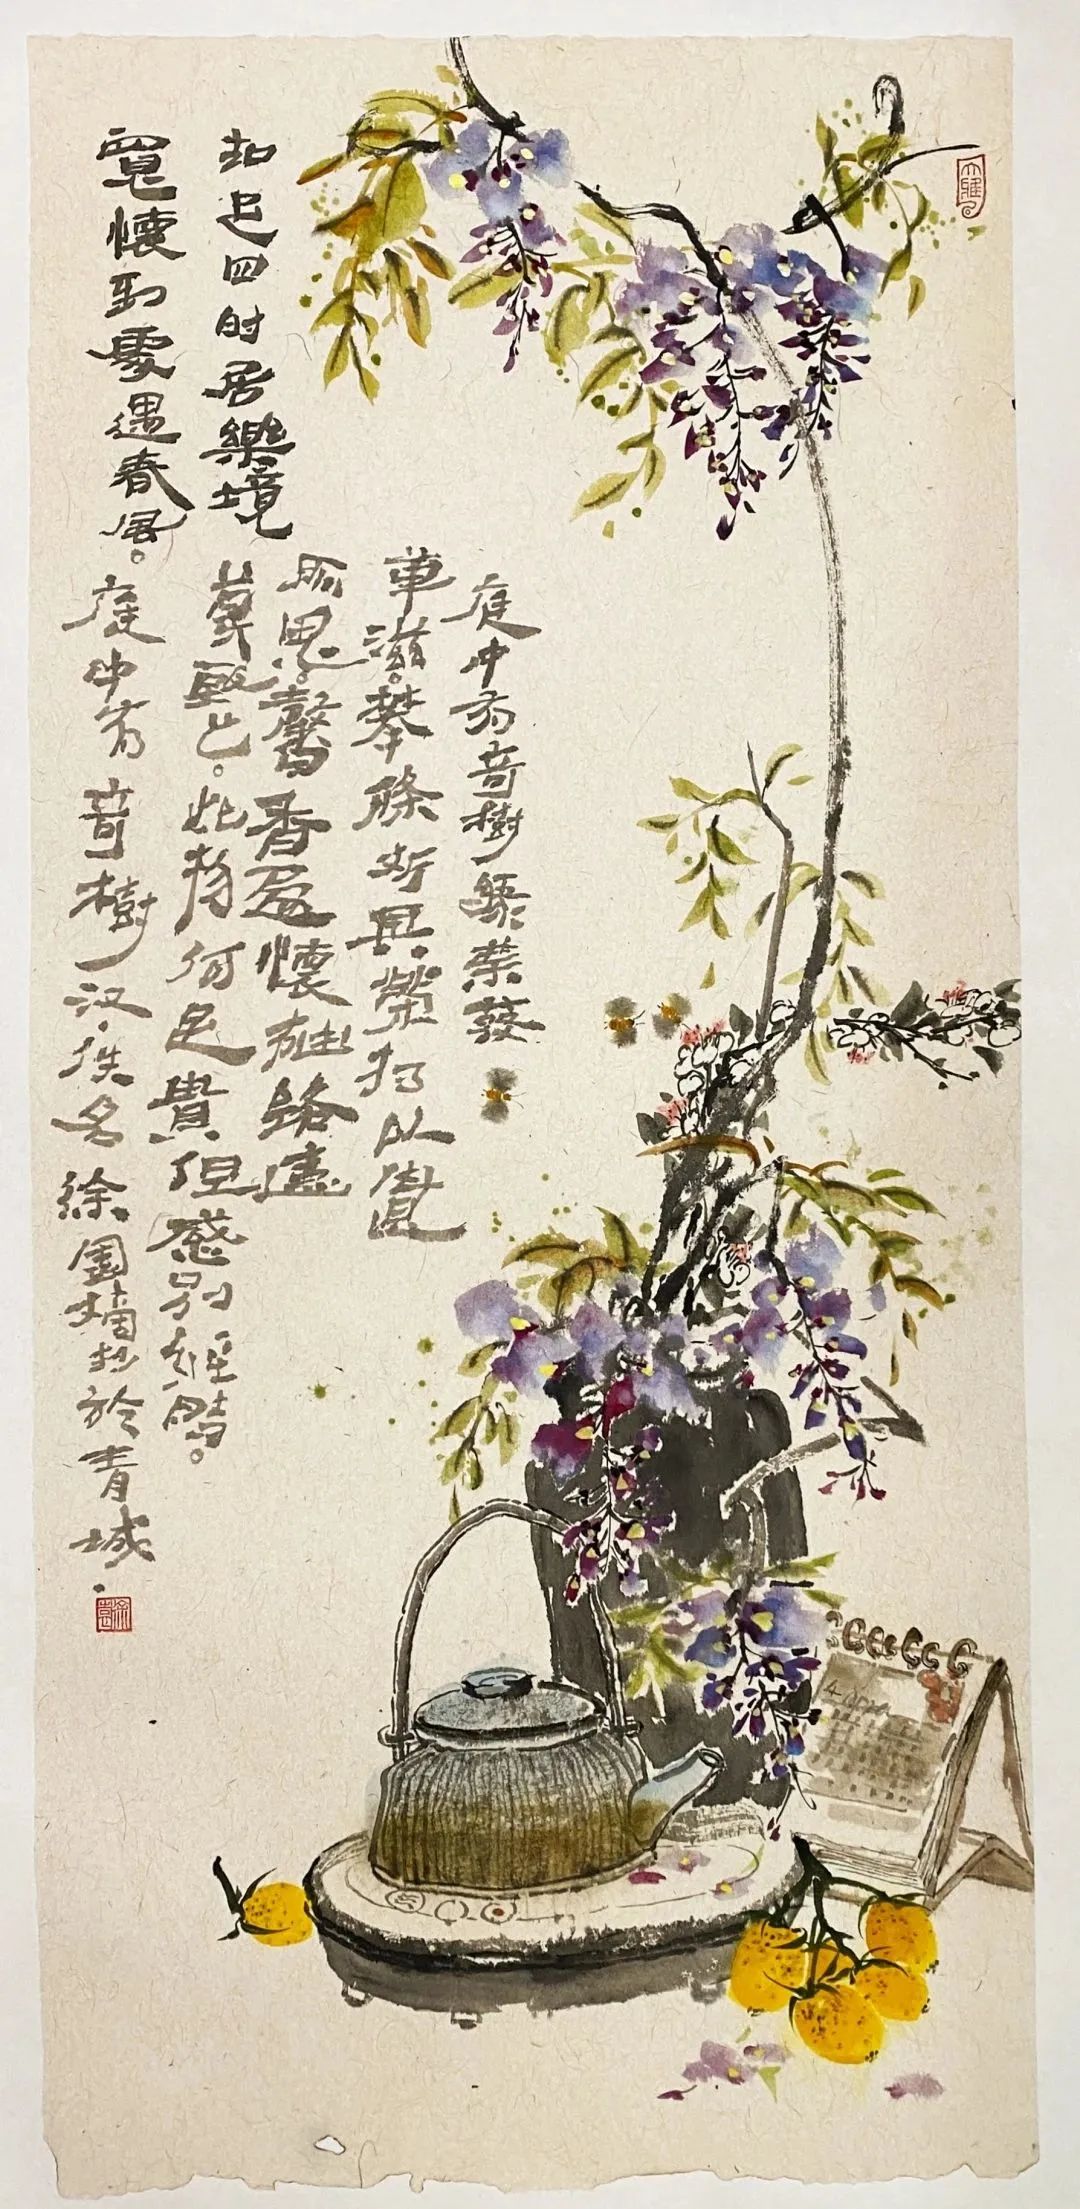 知足四时居樂境
寬懷到處遇春风。
庭中有奇樹綠葉發
華滋。攀條折其榮将以遺
所思。馨香盈懷袖路遠
莫致之。此物何足貴但感别經時。
庭中有奇樹汉·佚名徐園摘抄於青城.